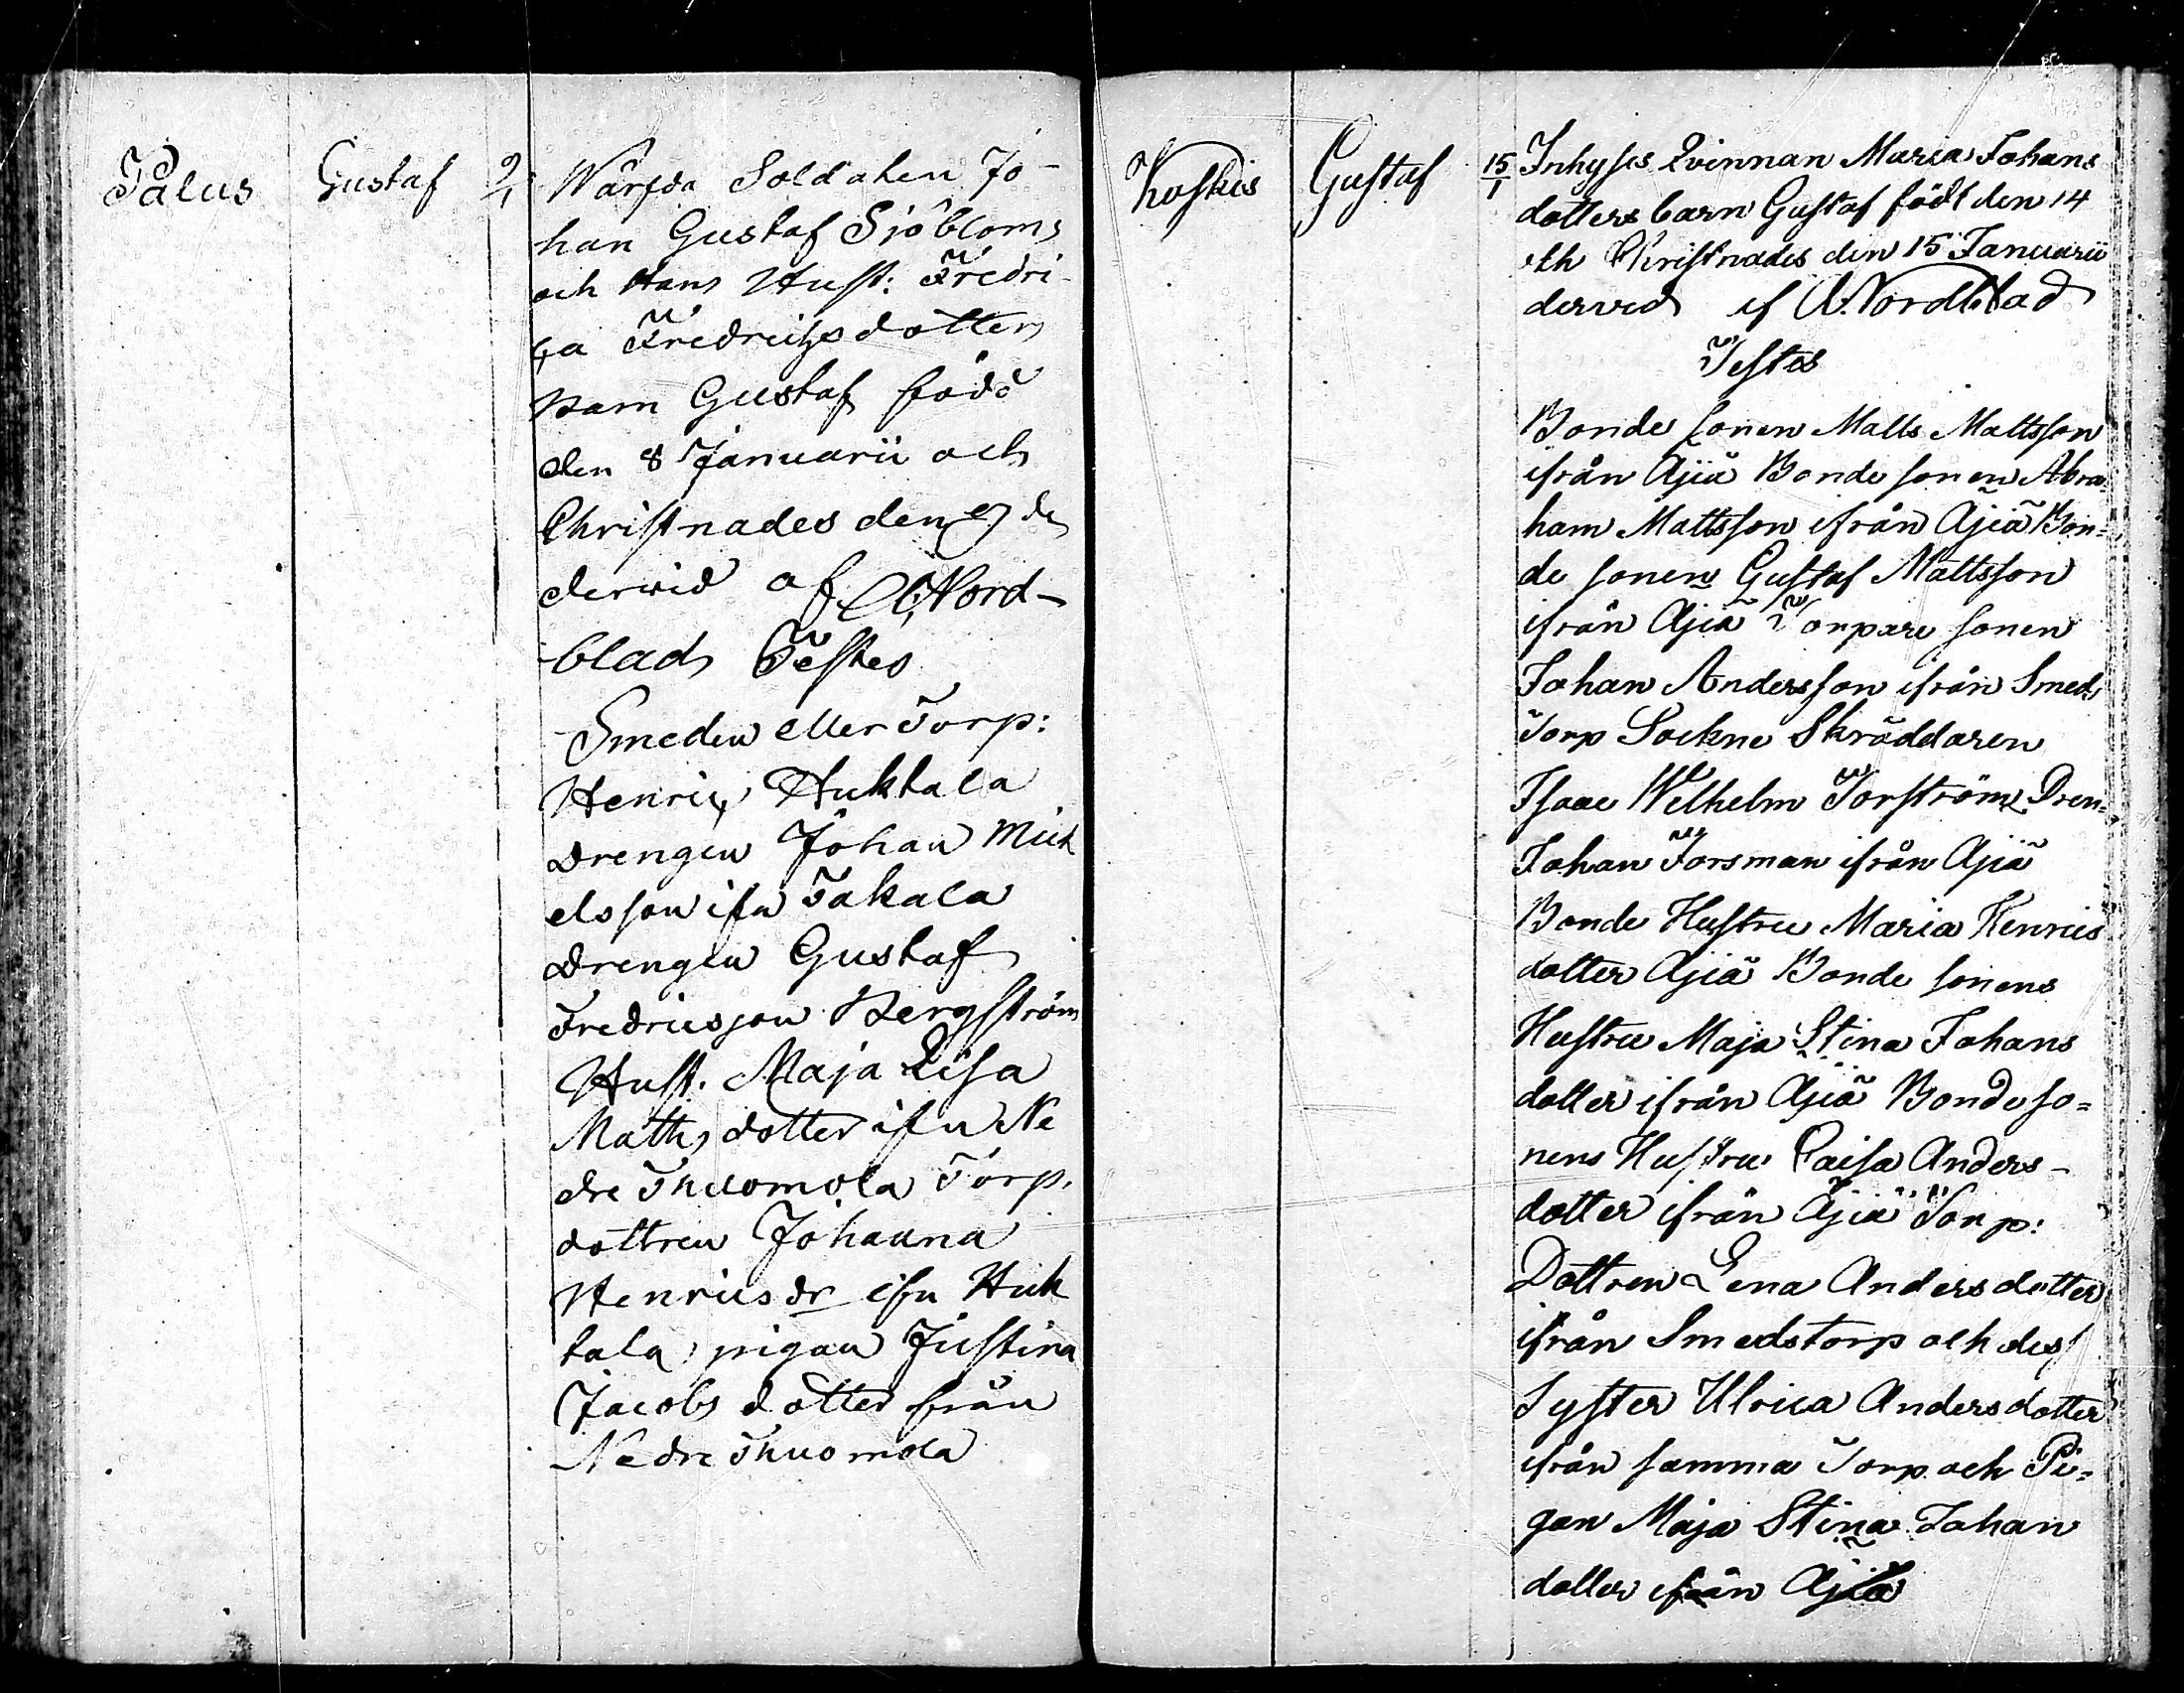 Palus Gustaf 9/1 Wärfda Soldaten Jo-
han Gustaf Sjöbloms
och Hans Hust: Fredri-
ca Fredrichsdotters
Barn Gustaf född
den 8 Januarii och
Christnades den 9 de
derwid af A. Nord-
blad Testes
Smeden eller Torp:
Henric Huktala
Drengen Johan Mick
elsson ifn Takala
Drengen Gustaf
Fredricsson Bergström
Hust. Maja Lisa
Maths dotter ifn Ne
dre Thuomola Torp.
dottren Johanna
Henricsdr ifn Huk
tala, pigan Justina
Jacobs dotter från
Nedre Thuomola
Koskis Gustaf 15/1 Inhyses Qvinnan Maria Johans
dotters barn Gustaf födt den 14
och Christnades den 15 Januarii
dervid af A. Nordblad
Testes
Bonde sonen Matts Mattsson
ifrån Äjiä Bonde sonen Abra-
ham Mattsson ifrån Äjiä Bon=
de sonen Gustaf Mattsson
ifrån Äjiä Torpare sonen
Johan Andersson ifrån Smeds
Torp Sockne Skräddaren
Isaac Wilhelm Torström Dren=
Johan Forsman ifrån Äjiä
Bonde Hustru Maria Henrics
dotter Äjiä Bonde sonens
Hustru Maja Stina Johans
dotter ifrån Äjiä Bonde so=
nens Hustru Caisa Anders-
dotter ifrån Äjiä Torp:
Dottren Lena Anders dotter
ifrån Smedstorp och dess
Syster Ulrica Anders dotter
ifrån samma Torp och Pi=
gan Maja Stina Johan
dotter ifrån Äjiä